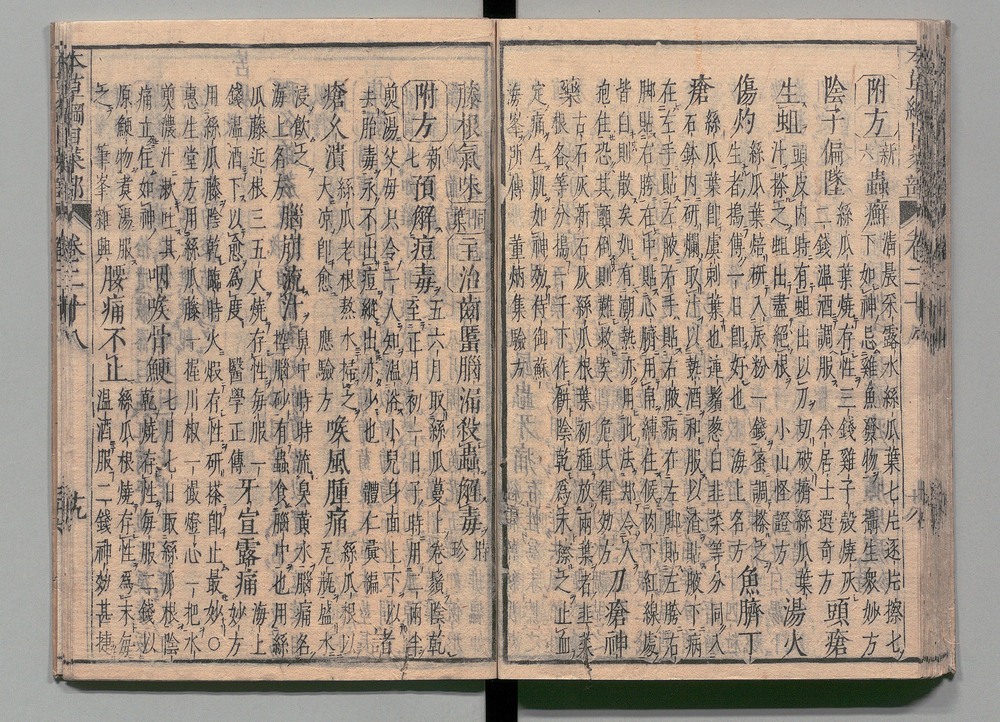 附方新六蟲癬清晨采露水絲瓜葉七片逐片擦七下如神忌雞魚發物攝生衆妙方
陰子偏墜絲瓜葉燒存性三錢雞子殼燒灰二錢溫酒調服余居士選奇方頭瘡
生蛆頭皮内時有蛆出以刀切破擠絲瓜葉汁搽之蛆出盡絕根小山怪證方湯火
傷灼絲瓜葉焙研入辰粉一錢蜜調搽之生者搗傅一日卽好也海上名方魚臍丁
瘡絲瓜葉卽虞刺葉也連鬚葱白韭菜等分同入石鉢内研爛取汁以熱酒和服以渣貼腋下病
在左手貼左腋右手貼右腋病在左脚貼左胯右脚貼右胯在中貼心臍用帛縛住候肉下紅線處
皆白則散矣如有潮熱亦用此法却令人抱住恐其顫倒則難救矣危氏得效方刀瘡神
藥古石灰新石灰絲瓜根葉初種放兩葉者韭菜根各等分搗一千下作餅陰乾爲末擦之止血
定痛生肌如神效侍御蘇海峯所傳董炳集驗方
藤根氣味同葉主治齒䘌腦漏殺蟲解毒時珍
附方新七預解痘毒五六月取絲瓜蔓上卷鬚陰乾至正月初一日子時用二兩半
煎湯父母只令一人知溫浴小兒身面上下以去胎毒永不出痘縱出亦少也體仁彙編諸
瘡久潰絲瓜老根熬水掃之大凉卽愈應驗方喉風腫痛絲瓜根以瓦瓶盛水
浸飲之海上名方腦崩流汁鼻中時時流臭黃水腦痛名控腦砂有蟲食腦中也用絲
瓜藤近根三五尺燒存性每服一錢溫酒下以愈爲度醫學正傳牙宣露痛海上妙方
用絲瓜藤陰乾臨時火煅存性研搽卽止最妙○惠生堂方用絲瓜藤一握川椒一撮燈心一把水
煎濃汁漱吐其痛立住如神咽喉骨鯁七月七日取絲瓜根陰乾燒存性每服二錢以
原鯁物煮湯服之筆峯雜興腰痛不止絲瓜根燒存性爲末每溫酒服二錢神妙甚捷